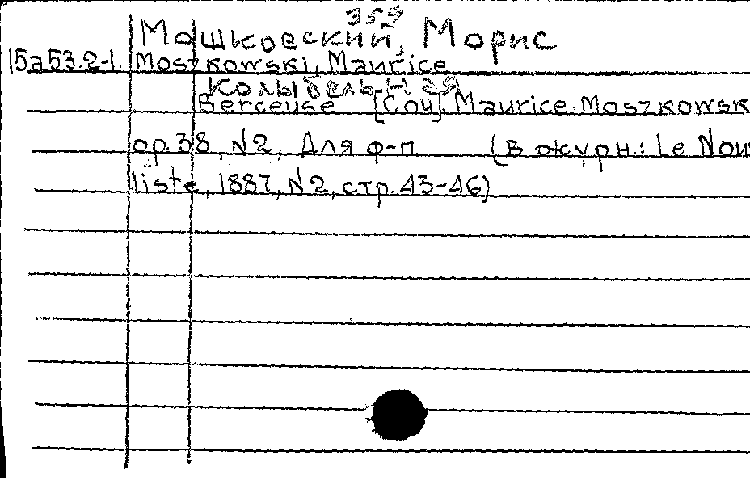 359
Мошковский, Морис
15a53.2-1. Moszkowski, Maurice
Колыбельная
Berceuse [Соч]. Maurice Moszkowsk
op.38, N2, Для ф-п (в журн.: Le Nou
liste, 1887, N2, стр. 43-46)